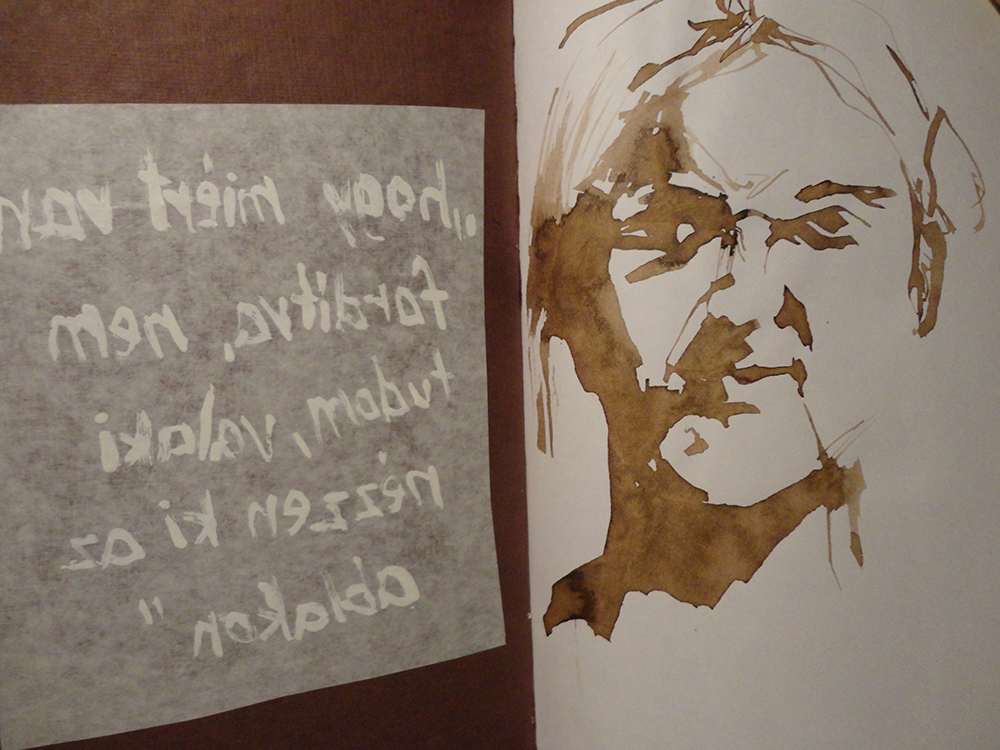 „hogy miért van
fordítva, nem
tudom, valaki
nézzen ki az
ablakon"